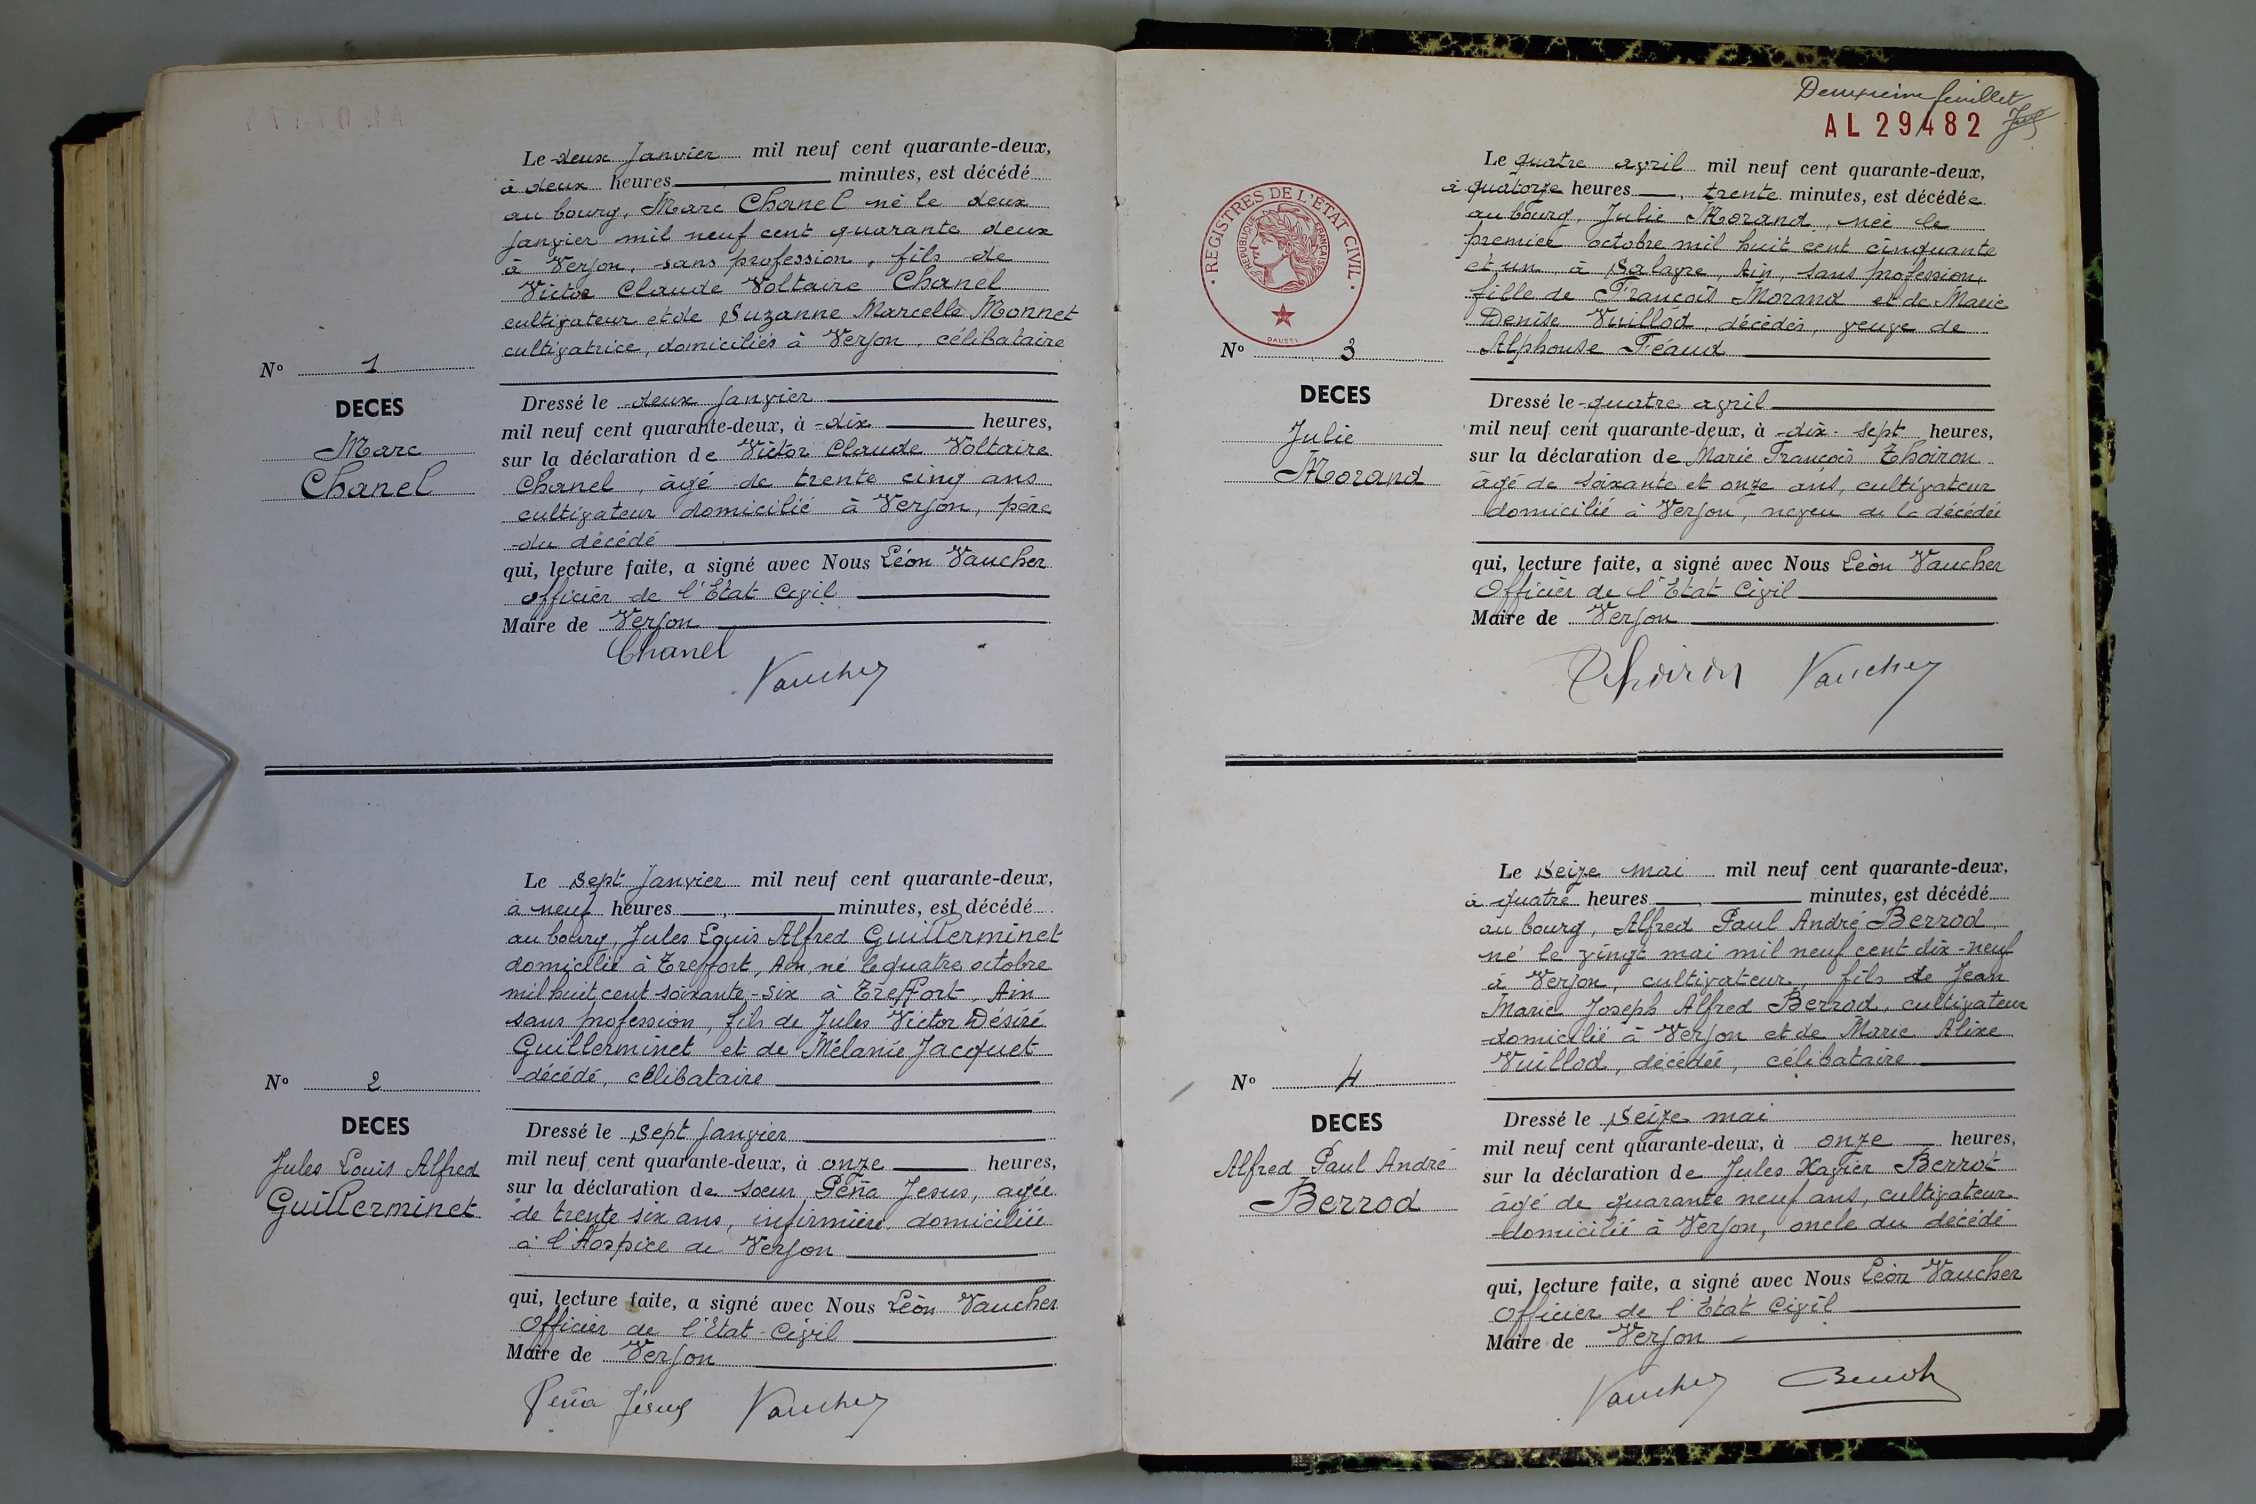 Le deux Janvier mil neuf cent quarante-deux,
à deux heures minutes, est décédé
au bourg, Marc Chanel né le deux
Janvier mil neuf cent quarante deux
à Verjon, sans profession, fils de
Victor Claude Voltaire Chanel
cultivateur et de Suzanne Marcelle Monnet
cultivatrice, domiciliés à Verjon, célibataire
No 1
DECES
Marc
Chanel
Dressé le deux Janvier
mil neuf cent quarante-deux, à dix heures,
sur la déclaration de Victor Claude Voltaire
Chanel, âgé de trente cinq ans
cultivateur domicilié à Verjon, père
du décédé
qui, lecture faite, a signé avec Nous Léon Vaucher
Officier de l'Etat Civil
Maire de Verjon
Chanel
Vaucher
Le sept Janvier mil neuf cent quarante-deux,
à neuf heures, minutes, est décédé
au bourg, Jules Louis Alfred Guillerminet
domicilié à Treffort, Ain, né le quatre octobre
mil huit cent soixante-six à Treffort, Ain
sans profession, fils de Jules Victor Désiré
Guillerminet et de Mélanie Jacquet
décédé, célibataire
No 2
DECES
Jules Louis Alfred
Guillerminet
Dressé le sept Janvier
mil neuf cent quarante-deux, à onze heures,
sur la déclaration de soeur Peña Jesus, agée
de trente six ans, infirmière domiciliée
à l'Hospice de Verjon
qui, lecture faite, a signé avec Nous Léon Vaucher
Officier de l'Etat-Civil
Maire de Verjon
Peña Jésus Vaucher
Deuxième feuillet
AL 29482
Le quatre avril mil neuf cent quarante-deux,
à quatorze heures, trente minutes, est décédée
au bourg, Julie Morand, née le
premier octobre mil huit cent cinquante
et un, à Salavre, Ain, sans profession,
fille de François Morand et de Marie
Denise Vuillod, décédés, veuve de
Alphonse Féaud
REGISTRES DE L'ETAT CIVIL
REPUBLIQUE FRANÇAISE
No 3
DECES
Julie
Morand
Dressé le quatre avril
mil neuf cent quarante-deux, à dix-sept heures,
sur la déclaration de Marie François Thoiron
âgé de soixante et onze ans, cultivateur
domicilié à Verjon, neveu de la décédée
qui, lecture faite, a signé avec Nous Léon Vaucher
Officier de l'Etat Civil
Maire de Verjon
Thoiron Vaucher
Le seize mai mil neuf cent quarante-deux,
à quatre heures, minutes, est décédé
au bourg, Alfred Paul André Berrod,
né le vingt mai mil neuf cent dix-neuf
à Verjon, cultivateur, fils de Jean
Marie Joseph Alfred Berrod, cultivateur
domicilié à Verjon et de Marie Alixe
Vuillod, décédée, célibataire
No 4
DECES
Alfred Paul André
Berrod
Dressé le seize mai
mil neuf cent quarante-deux, à onze heures,
sur la déclaration de Jules Xavier Berrot
âgé de quarante neuf ans, cultivateur
domicilié à Verjon, oncle du décédé
qui, lecture faite, a signé avec Nous Léon Vaucher
Officier de l'Etat Civil
Maire de Verjon
Vaucher